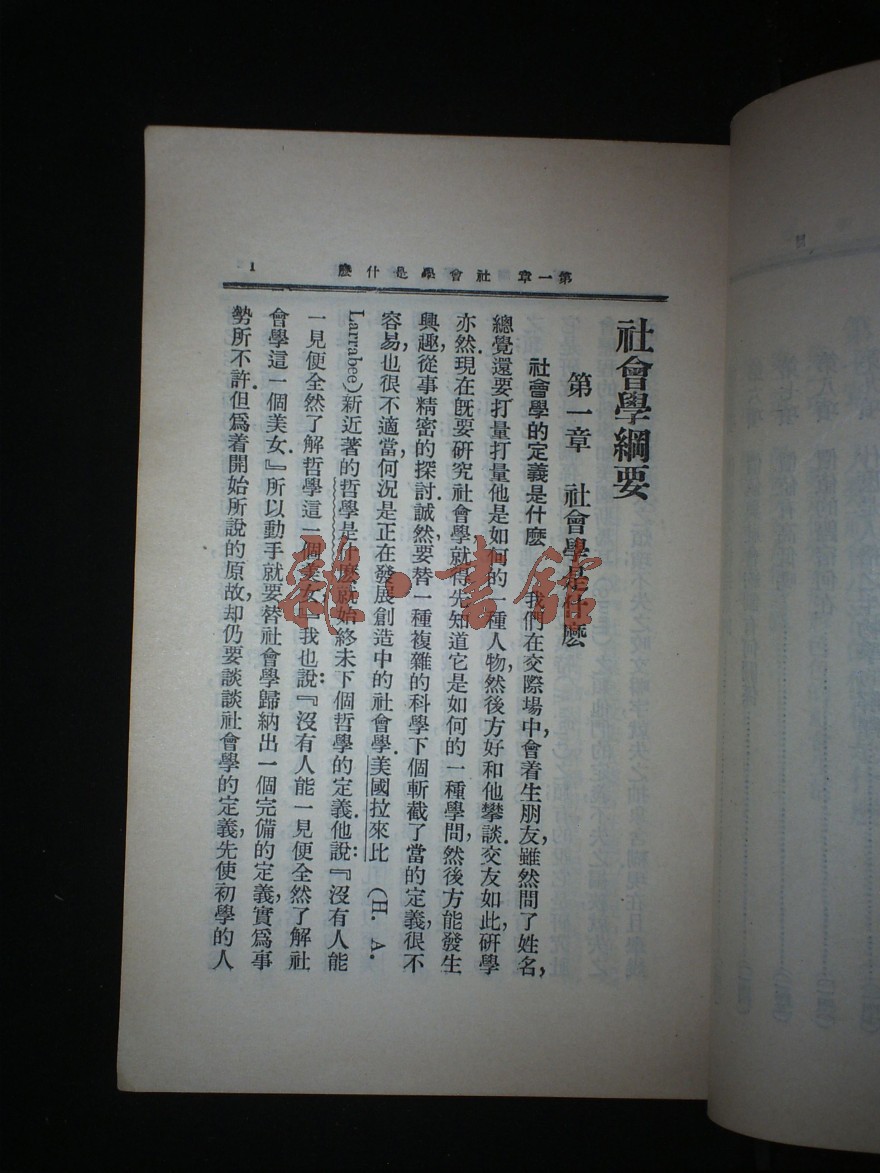 第一章 社會學是什麽 1
社會學綱要
第一章 社會學是什麽
社會學的定義是什麽 我們在交際場中會着生朋友，雖然問了姓名，
總覺還要打量打量他是如何的一種人物，然後方好和他攀談交友如此，研學
亦然．現在旣要研究社會學就得先知道它是如何的一種學問，然後方能發生
興趣，從事精密的探討．誠然，要替一種複雜的科學下個斬截了當的定義，很不
容易，也很不適當，何況是正在發展創造中的社會學．美國拉來比 (H. A.
Larrabee) 新近著的哲學是什麽就始終未下個哲學的定義．他說：『沒有人能
一見便全然了解哲學這一個美女．』我也說：『沒有人能一見便全然了解社
會學這一個美女．』所以動手就要替社會學歸納出一個完備的定義，實爲事
勢所不許．但爲着開始所說的原故，却仍要談談社會學的定義，先使初學的人
雜·書館